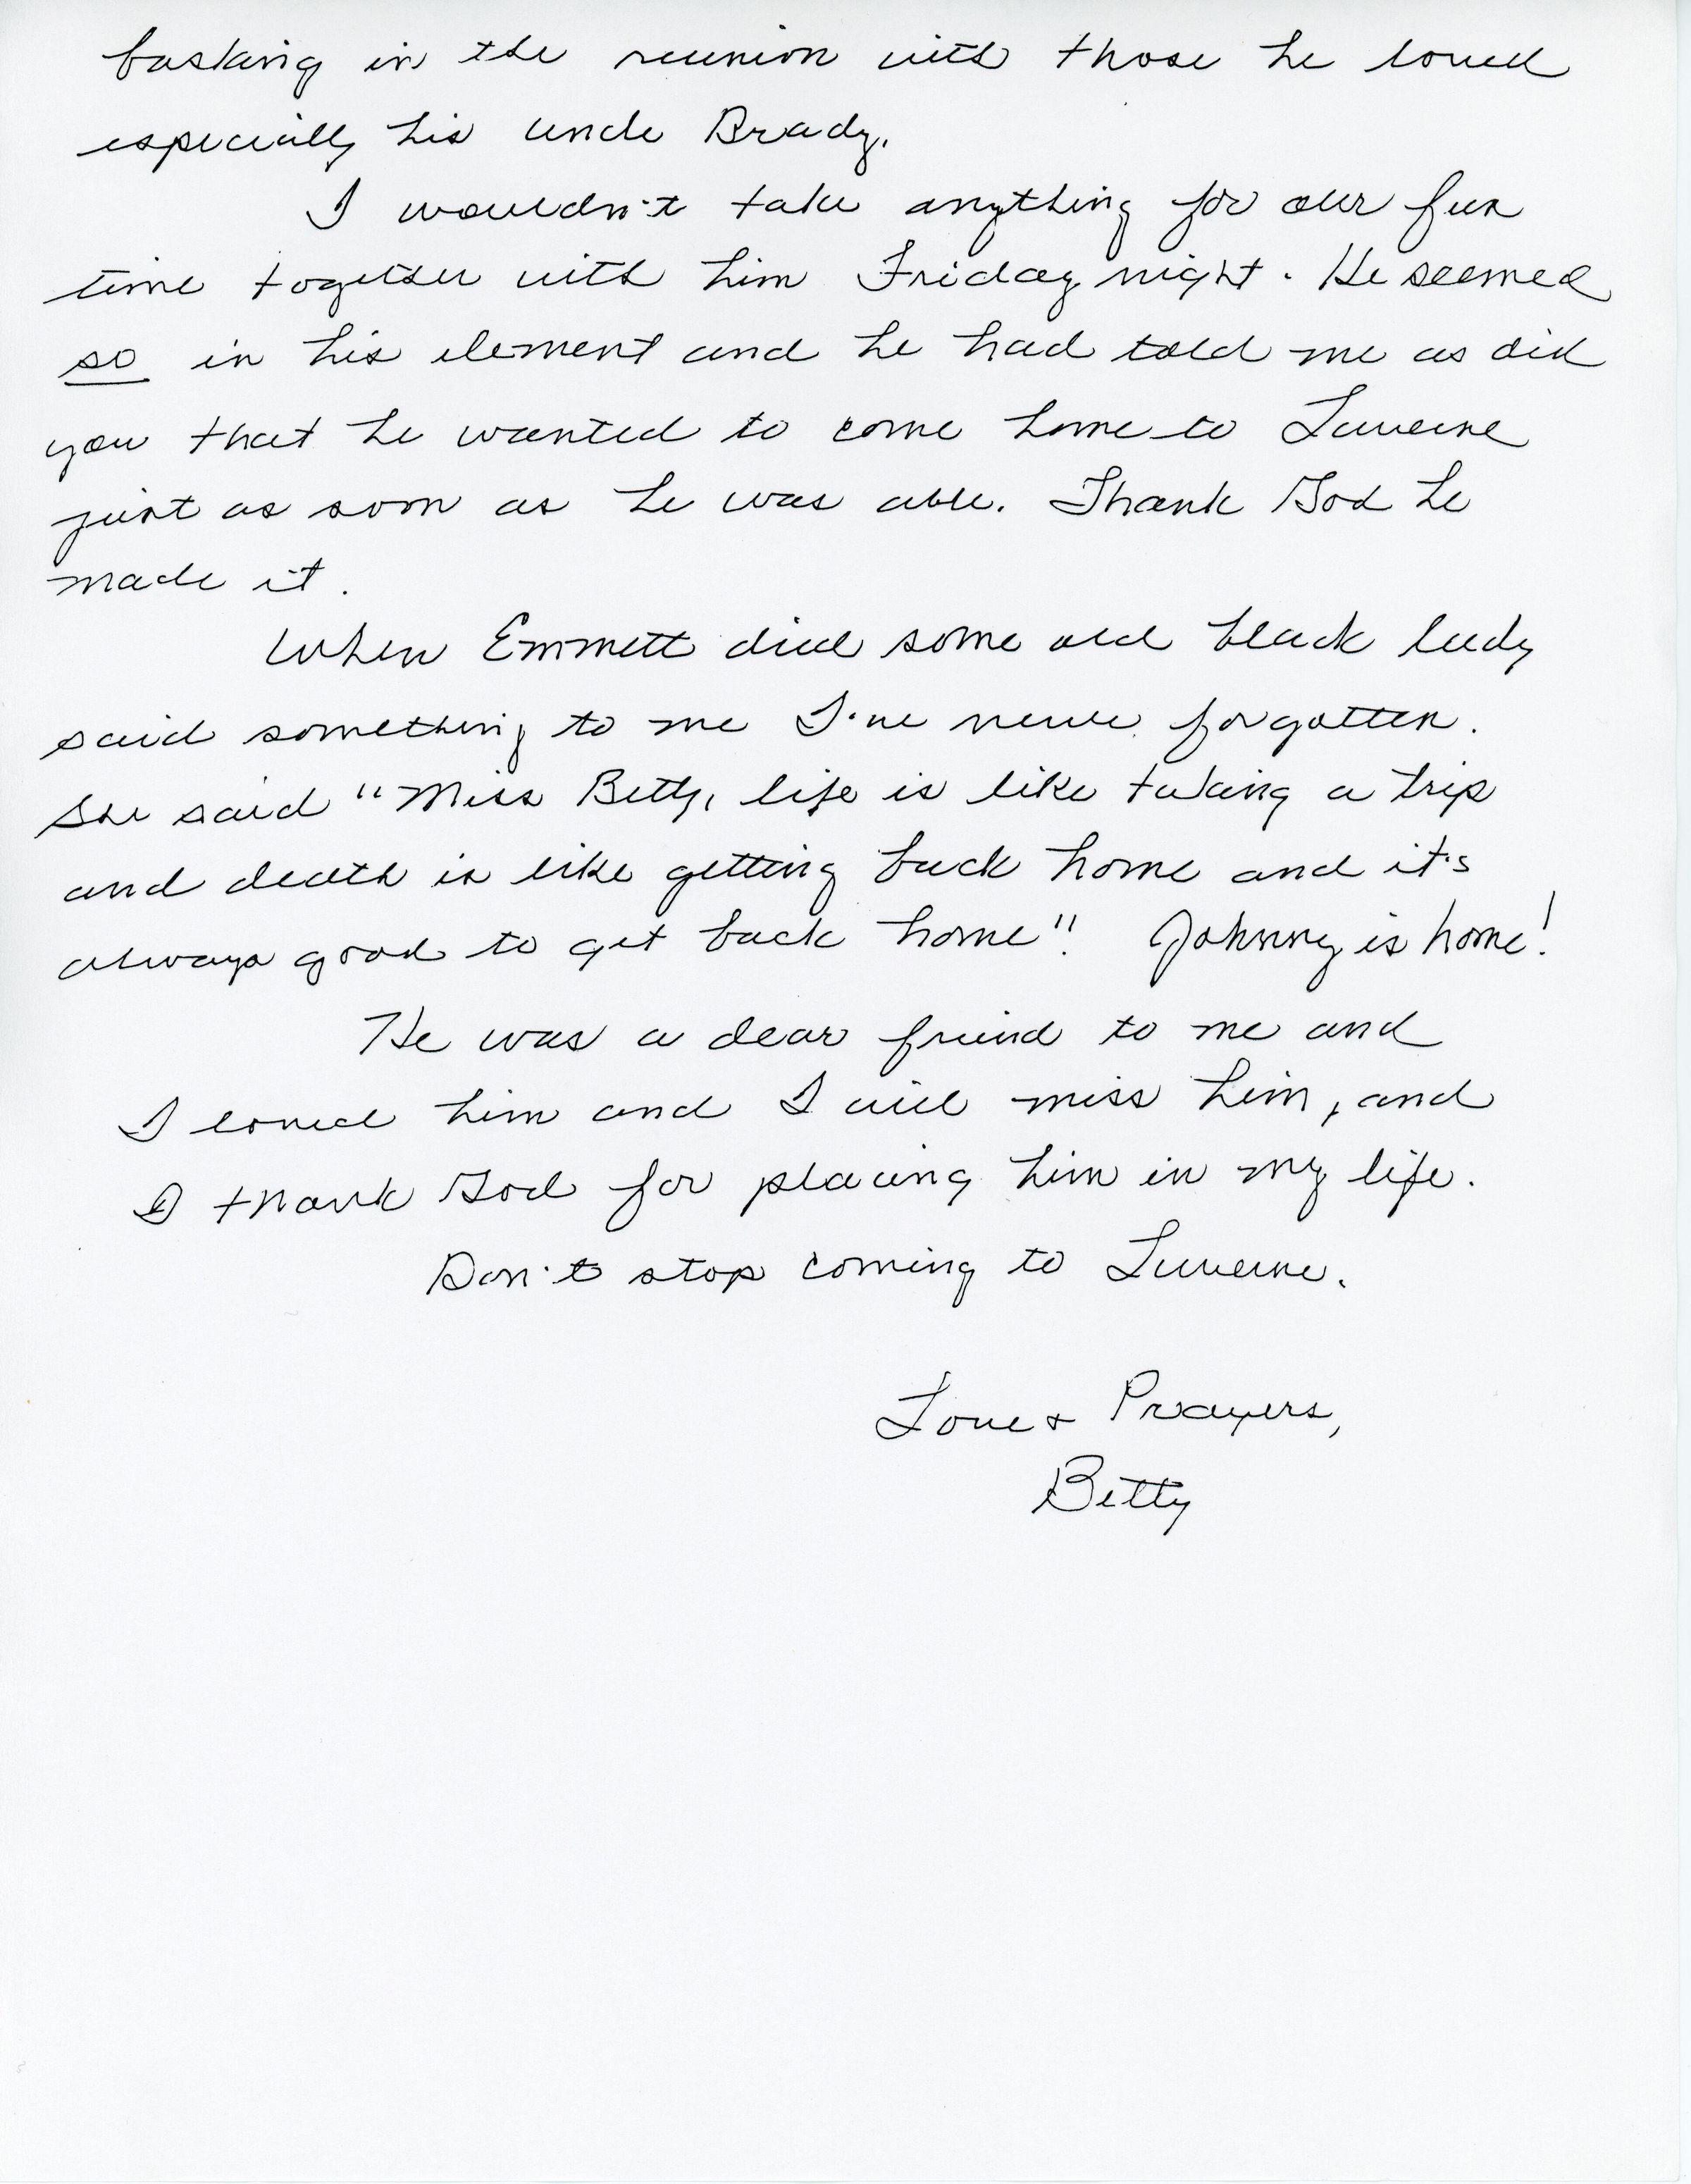 basking in the reunion with those he loved
especially his uncle Brady.
I wouldn't take anything for our fun
time together with him Friday night. He seemed
so in his element and he had told me as did
you that he wanted to come home to Luverne
just as soon as he was able. Thank God he
made it.
When Emmett died some old black lady
said something to me I've never forgotten.
She said "Miss Betty, life is like taking a trip
and death is like getting back home and it's
always good to get back home"! Johnny is home!
He was a dear friend to me and
I loved him and I will miss him, and
I thank God for placing him in my life.
Don't stop coming to Luverne.
Love & Prayers,
Betty